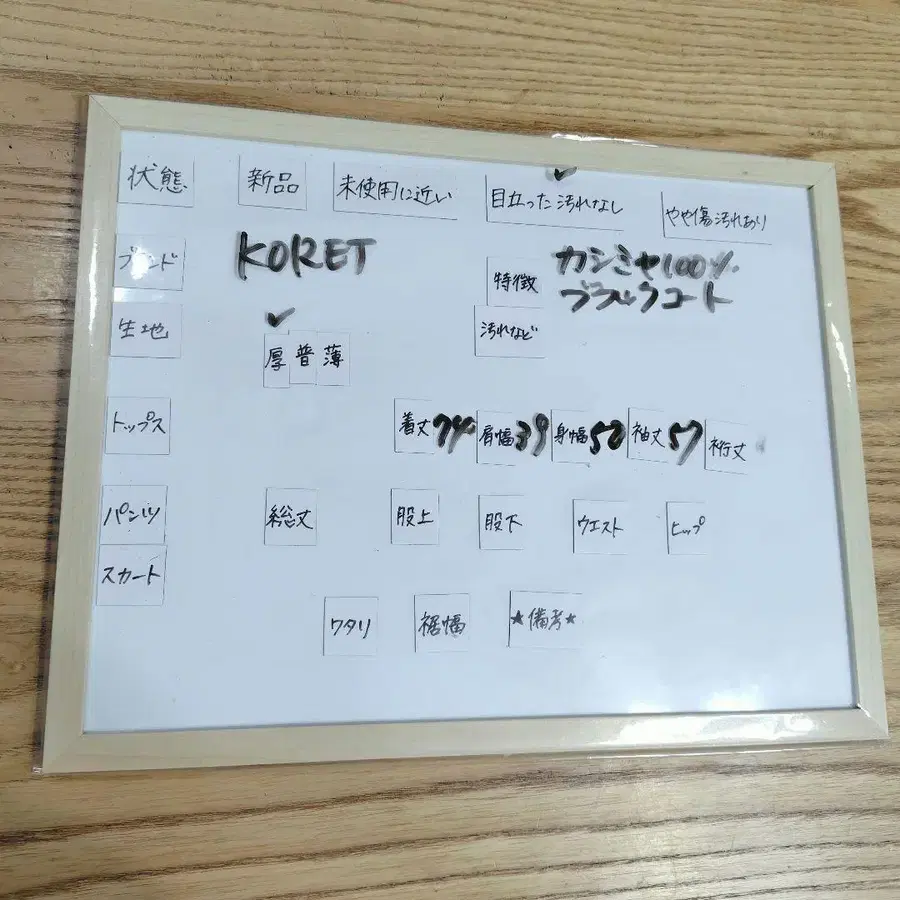 状態 新品 未使用に近い 目立った汚れなし やや傷汚れあり
ブランド KORET 特徴 カシミヤ100%
ブラックコート
生地 厚 普 薄 汚れなど
トップス 着丈 74 肩幅 39 身幅 50 袖丈 57 裄丈
パンツ 総丈 股上 股下 ウエスト ヒップ
スカート
ワタリ 裾幅 ★備考★